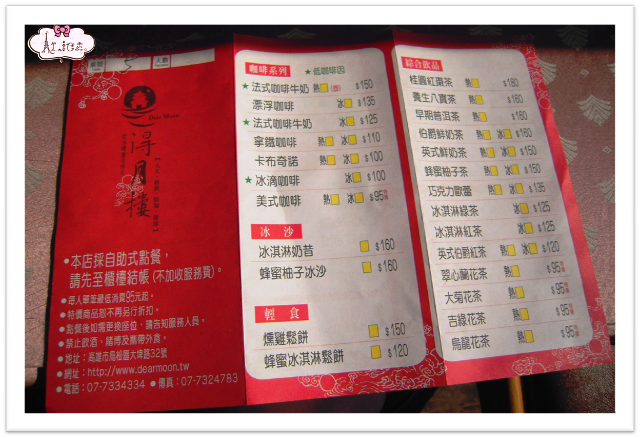 Ariel
桌號
5
人數
Dear Moon
得月樓
•本店採自助式點餐，
請先至櫃檯結帳(不加收服務費)。
•每人單筆最低消費95元起。
•特價商品恕不再另行折扣。
•點餐後如需更換座位，請告知服務人員。
•禁止飲酒、賭博及攜帶外食。
•地址：高雄市鳥松區大埤路32號
•網址：http://www.dearmoon.tw
•電話：07-7334334 •傳真：07-7324783
咖啡系列 ★低咖啡因
★法式咖啡牛奶 熱 $150
漂浮咖啡 冰 $135
★法式咖啡牛奶 冰 $125
拿鐵咖啡 熱 冰 $110
卡布奇諾 熱 冰 $100
★冰滴咖啡 冰 $100
美式咖啡 熱 冰 $95
冰沙
冰淇淋奶昔 $160
蜂蜜柚子冰沙 $160
輕食
燻雞鬆餅 $150
蜂蜜冰淇淋鬆餅 $120
綜合飲品
桂圓紅棗茶 熱 $180
養生八寶茶 熱 $160
早期麵茶 熱 $160
伯爵鮮奶茶 熱 冰 $160
英式鮮奶茶 熱 冰 $150
蜂蜜柚子茶 熱 冰 $150
巧克力歐蕾 熱 冰 $135
冰淇淋綠茶 冰 $125
冰淇淋紅茶 冰 $125
英式伯爵紅茶 熱 冰 $120
翠心蘭花茶 熱 $95
大菊花茶 熱 $95
吉綠花茶 熱 $95
烏龍花茶 熱 $95